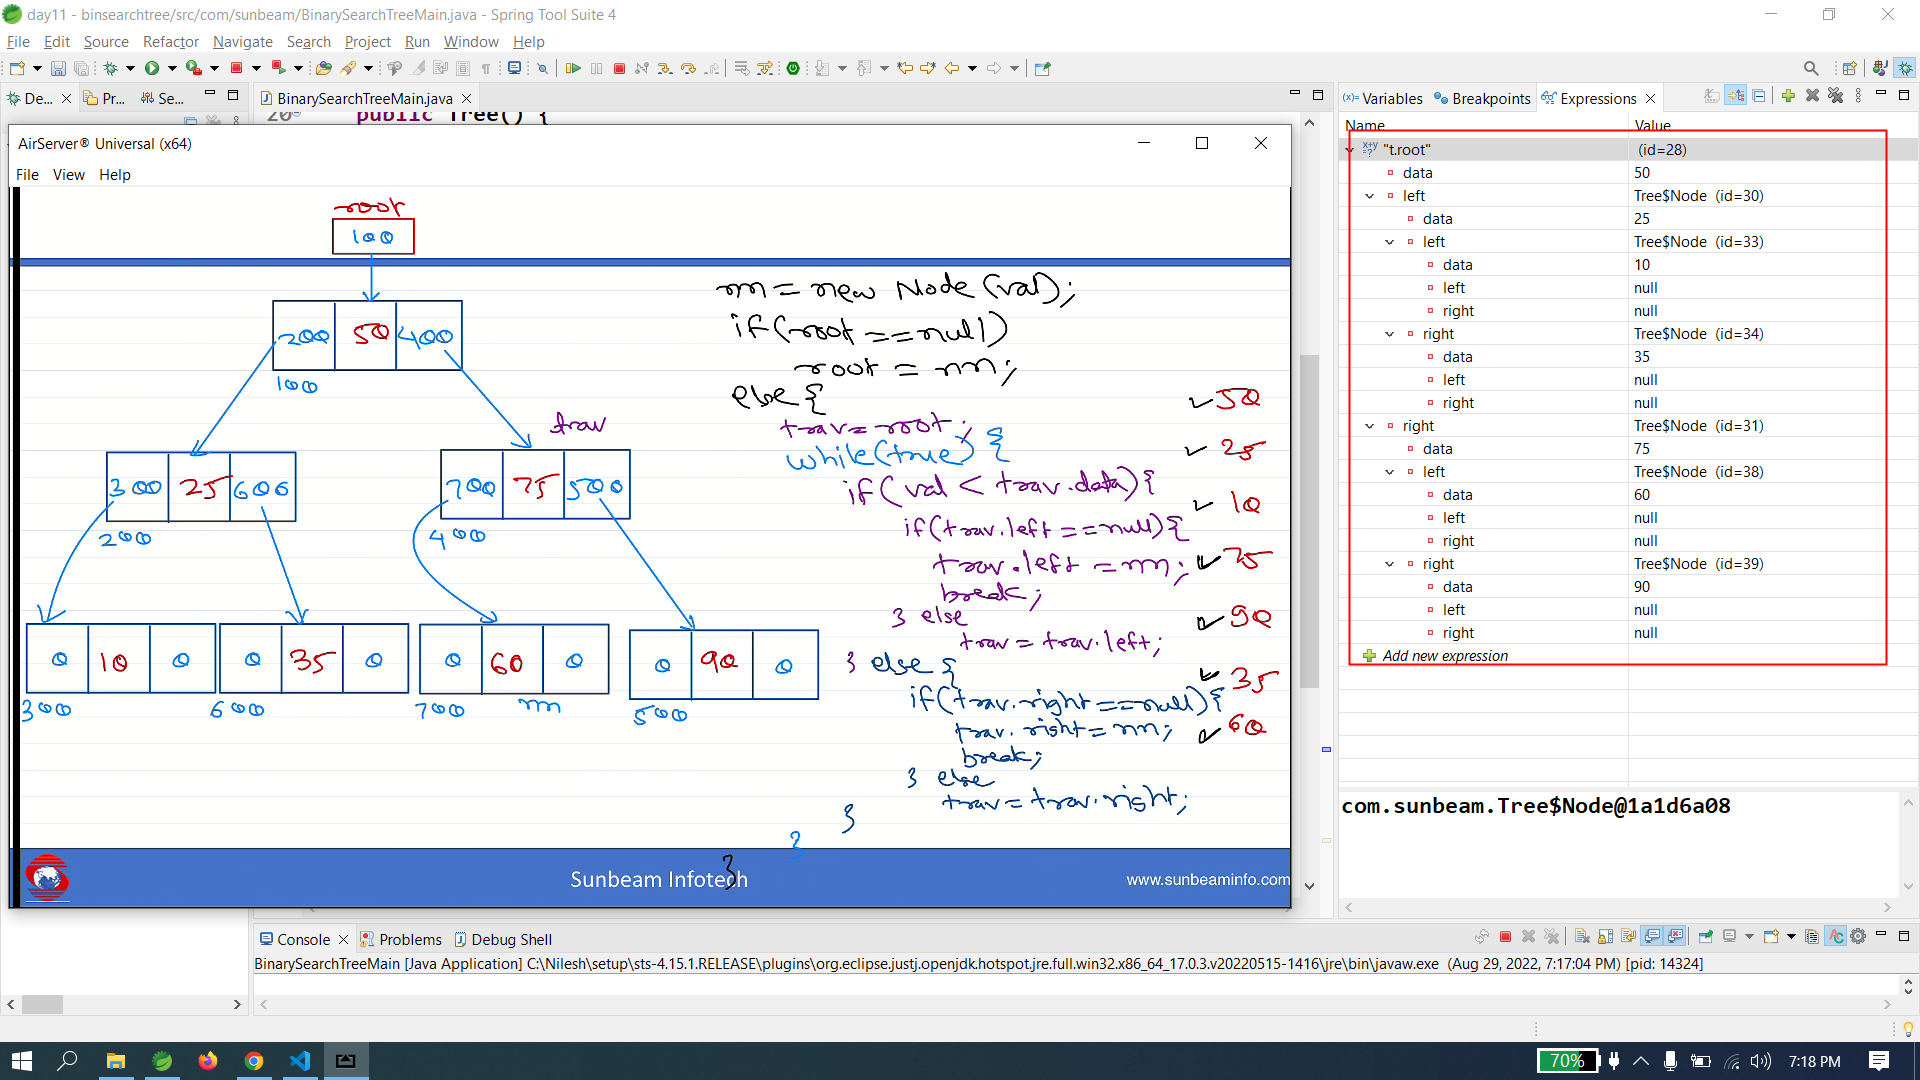 day11 - binsearchtree/src/com/sunbeam/BinarySearchTreeMain.java - Spring Tool Suite 4
File Edit Source Refactor Navigate Search Project Run Window Help
De... Pr... Se...
BinarySearchTreeMain.java
20 public Tree() {
AirServer® Universal (x64)
File View Help
root
100
200 50 400
100
trav
300 25 600
200
700 75 500
400
0 10 0
300
0 35 0
600
0 60 0
700 nn
0 90 0
500
nn = new Node(val);
if(root == null)
root = nn;
else{
trav = root;
while(true) {
if( val < trav.data){
if(trav.left == null){
trav.left = nn;
break;
} else
trav = trav.left;
} else {
if(trav.right == null){
trav.right = nn;
break;
} else
trav = trav.right;
}
}
}
✓ 50
✓ 25
✓ 10
✓ 75
✓ 90
✓ 35
✓ 60
Sunbeam Infotech
www.sunbeaminfo.com
(x)= Variables Breakpoints Expressions
Name Value
"t.root" (id=28)
data 50
left Tree$Node (id=30)
data 25
left Tree$Node (id=33)
data 10
left null
right null
right Tree$Node (id=34)
data 35
left null
right null
right Tree$Node (id=31)
data 75
left Tree$Node (id=38)
data 60
left null
right null
right Tree$Node (id=39)
data 90
left null
right null
Add new expression
com.sunbeam.Tree$Node@1a1d6a08
Console Problems Debug Shell
BinarySearchTreeMain [Java Application] C:\Nilesh\setup\sts-4.15.1.RELEASE\plugins\org.eclipse.justj.openjdk.hotspot.jre.full.win32.x86_64_17.0.3.v20220515-1416\jre\bin\javaw.exe (Aug 29, 2022, 7:17:04 PM) [pid: 14324]
70%
7:18 PM